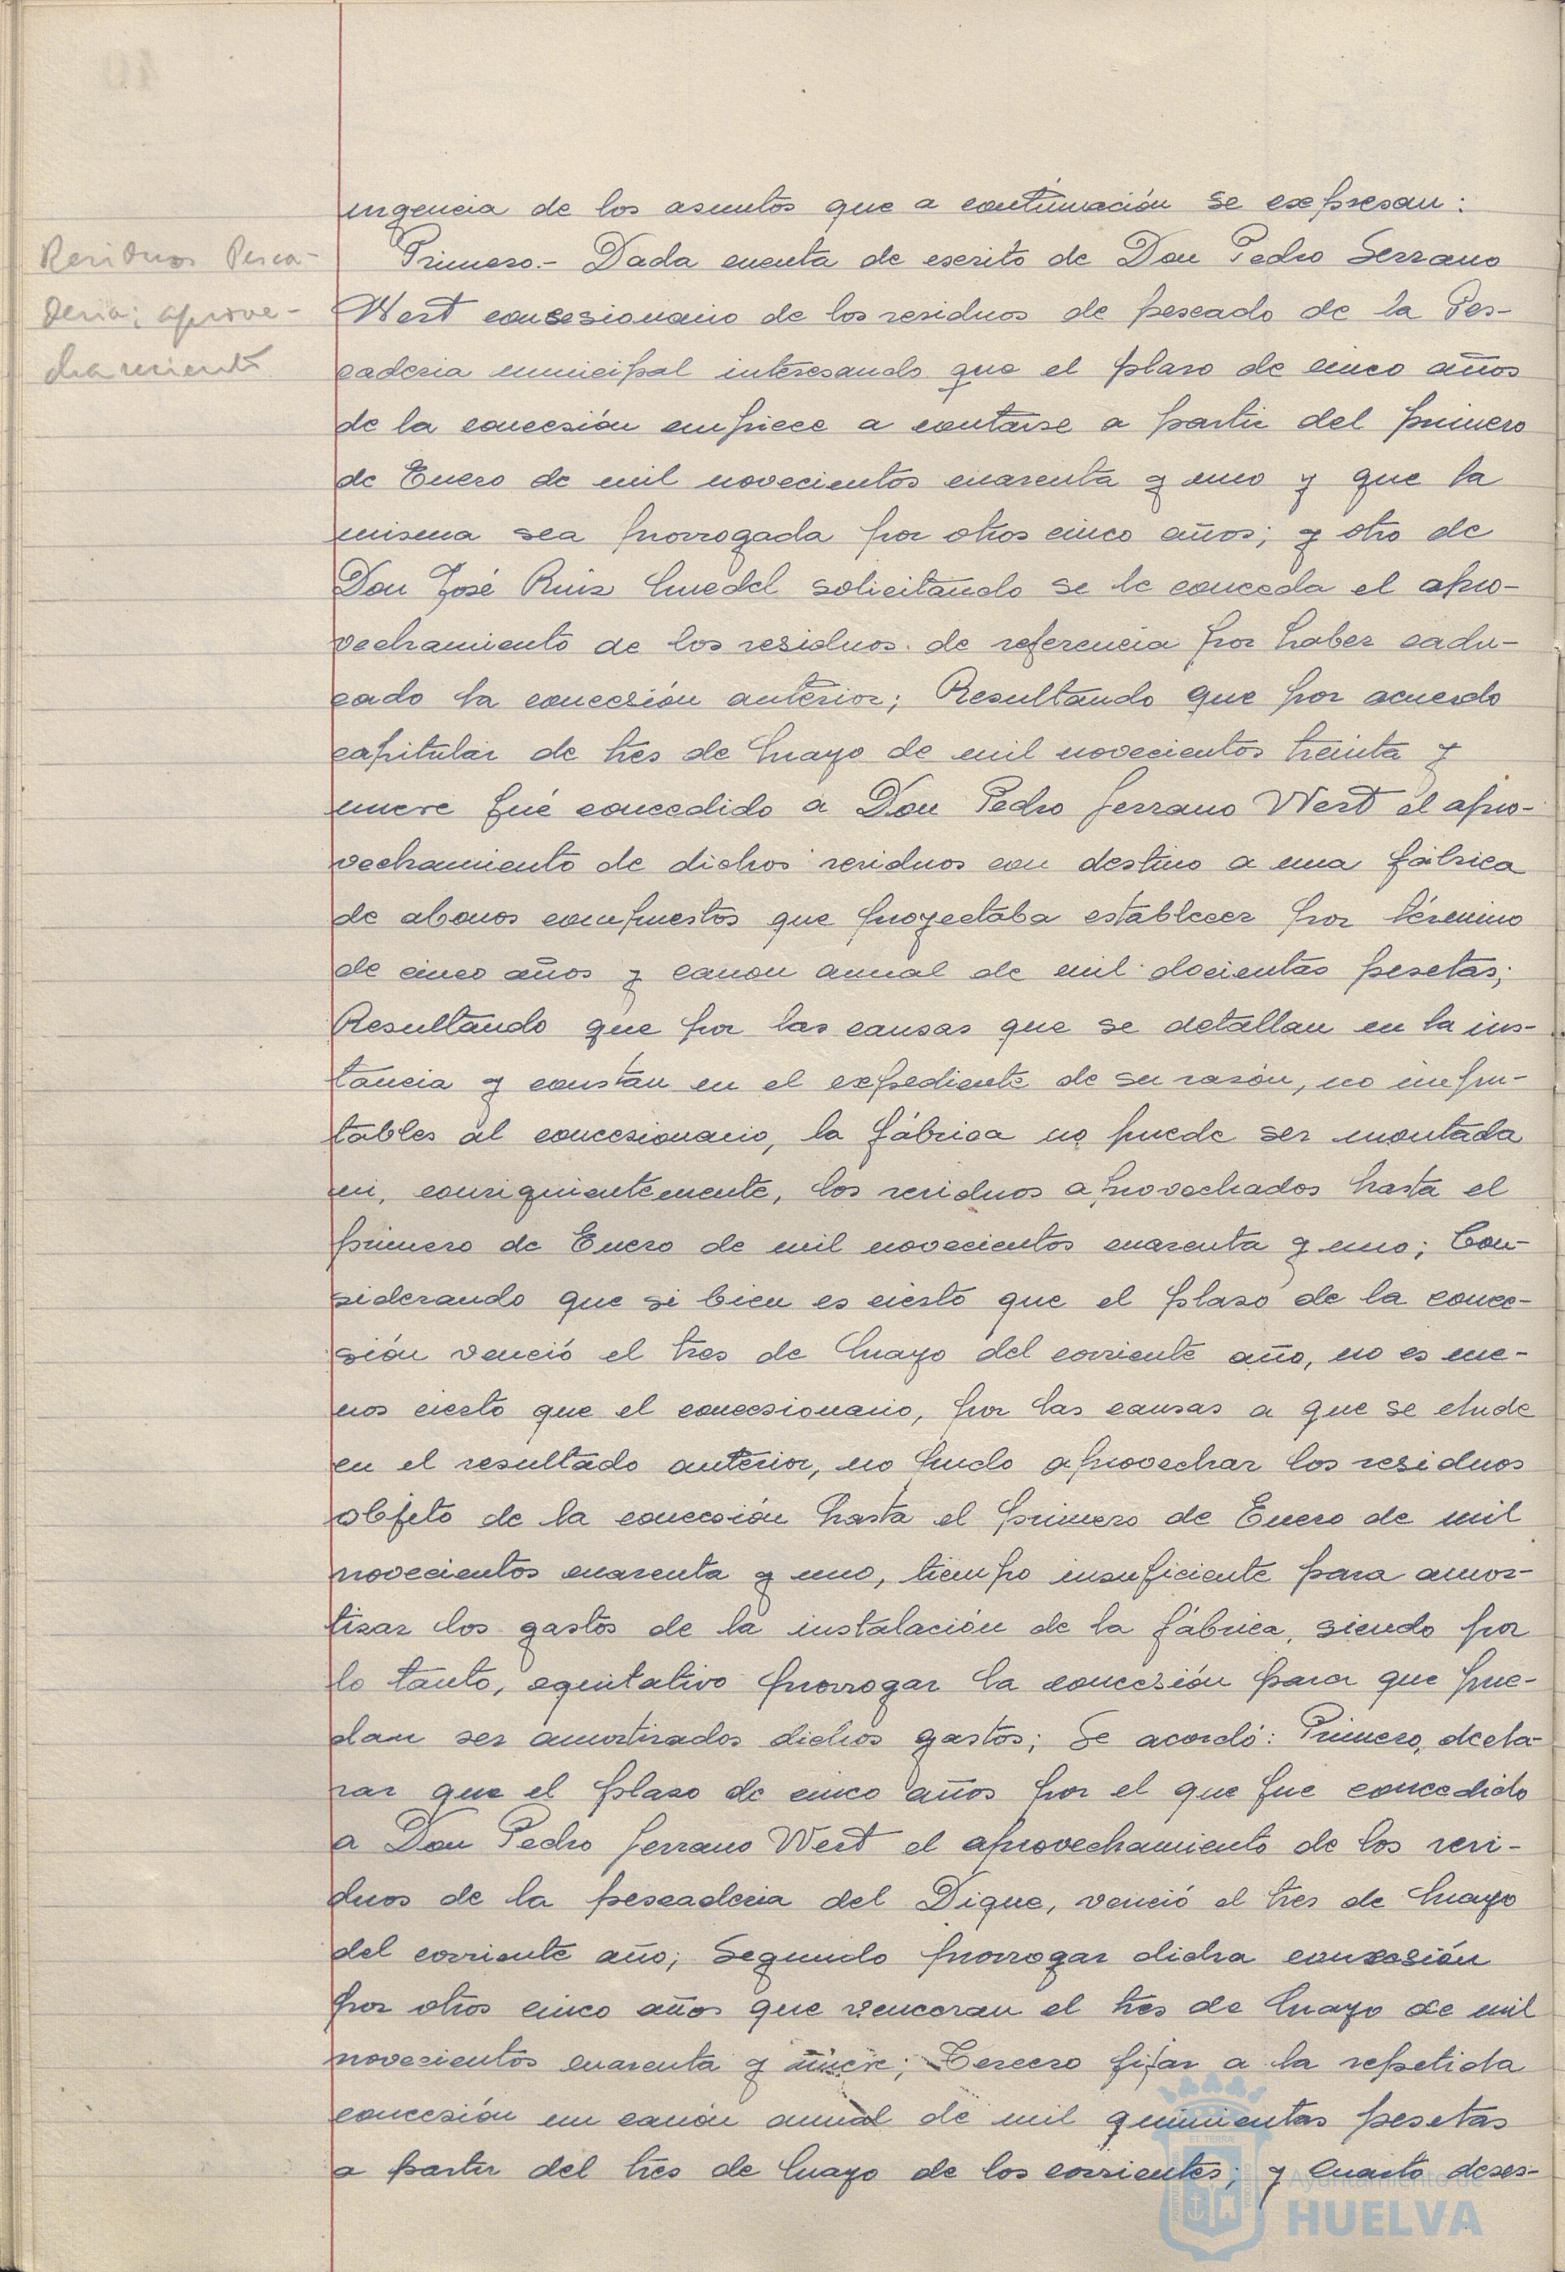 Residuos Pesca-
deria; aprove-
chamiento
urgencia de los asuntos que a continuación se expresan:
Primero.- Dada cuenta de escrito de Don Pedro Serrano
Wert concesionario de los residuos de pescado de la Pes-
caderia municipal interesando que el plazo de cinco años
de la concesión empiece a contarse a partir del primero
de Enero de mil novecientos cuarenta y uno y que la
misma sea prorrogada por otros cinco años; y otro de
Don José Ruiz solicitando se le conceda el apro-
vechamiento de los residuos de referencia por haber cadu-
cado la concesión anterior; Resultando que por acuerdo
capitular de tres de Mayo de mil novecientos treinta y
nueve fué concedido a Don Pedro Serrano Wert el apro-
vechamiento de dichos residuos con destino a una fábrica
de abonos compuestos que proyectaba establecer por término
de cinco años y canon anual de mil docientas pesetas;
Resultando que por las causas que se detallan en la ins-
tancia y constan en el expediente de su razón, no impu-
tables al concesionario, la fábrica no puede ser montada
ni, consiguientemente, los residuos aprovechados hasta el
primero de Enero de mil novecientos cuarenta y uno; Con-
siderando que si bien es cierto que el plazo de la conce-
sión venció el tres de Mayo del corriente año, no es me-
nos cierto que el concesionario, por las causas a que se elude
en el resultado anterior, no pudo aprovechar los residuos
objeto de la concesión hasta el primero de Enero de mil
novecientos cuarenta y uno, tiempo insuficiente para amor-
tizar los gastos de la instalación de la fábrica, siendo por
lo tanto, equitativo prorrogar la concesión para que pue-
dan ser amortizados dichos gastos; Se acordó: Primero, decla-
rar que el plazo de cinco años por el que fue concedido
a Don Pedro Serrano Wert el aprovechamiento de los resi-
duos de la pescaderia del Dique, venció el tres de Mayo
del corriente año; Segundo prorrogar dicha concesión
por otros cinco años que venceran el tres de Mayo de mil
novecientos cuarenta y nueve; Tercero fijar a la repetida
concesión un canón anual de mil quinientas pesetas
a partir del tres de Mayo de los corrientes; y Cuarto deses-
Ayuntamiento de
HUELVA